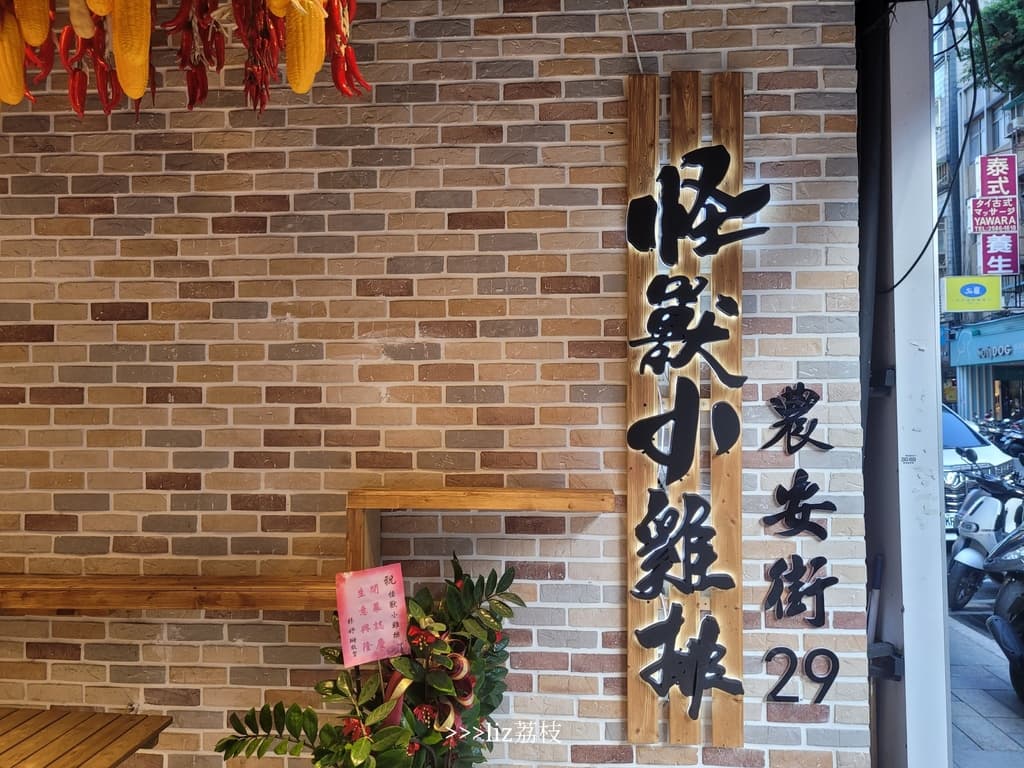 怪獸小雞排
農安街
29
祝
怪獸小雞排
開幕誌慶
生意興隆
泰式
タイ古式
マッサージ
YAWARA
TEL:2586-1616
養生
DOG
>>>liz荔枝